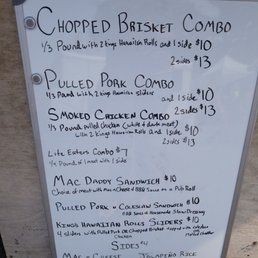 CHOPPED BRISKET COMBO
1/3 POUND WITH 2 KINGS HAWAIIAN ROLLS AND 1 SIDE $10
2 SIDES $13
PULLED PORK COMBO
1/3 POUND WITH 2 KINGS HAWAIIAN SLIDERS AND 1 SIDE $10
2 SIDES $13
SMOKED CHICKEN COMBO
1/3 POUND PULLED CHICKEN (WHITE & DARK MEAT)
WITH 2 KINGS HAWAIIAN ROLLS AND 1 SIDE $10
2 SIDES $13
LITE EATERS COMBO $7
OF MEAT WITH 1 SIDE
MAC DADDY SANDWICH $10
CHOICE OF MEAT WITH MAC & CHEESE & BBQ SAUCE ON A PUB ROLL
PULLED PORK & COLESLAW SANDWICH $10
BBQ SAUCE & HOMEMADE SLAW DRESSING
KINGS HAWAIIAN ROLLS SLIDERS $10
4 SLIDERS WITH PULLED PORK OR CHOPPED BRISKET
CHICKEN
SIDES $4
MAC & CHEESE JALAPEÑO RICE